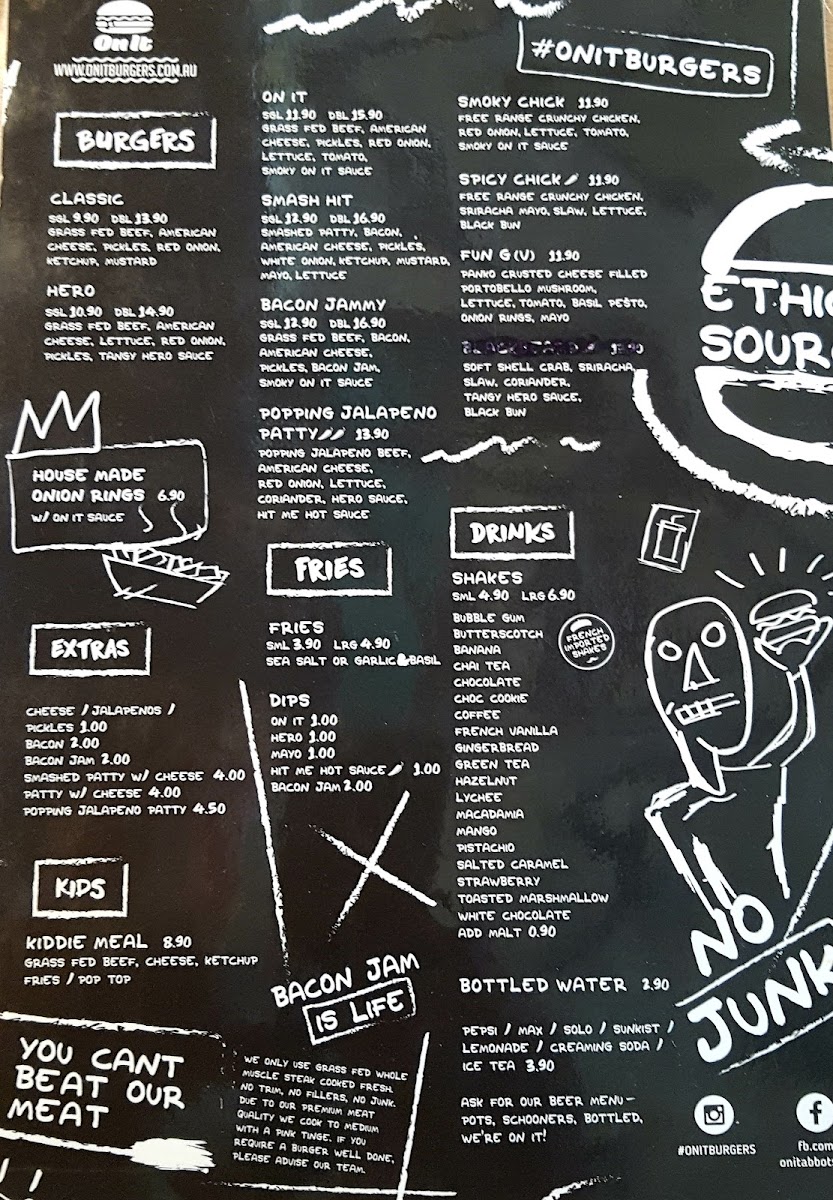 On It
WWW.ONITBURGERS.COM.AU
#ONITBURGERS
BURGERS
CLASSIC
SGL 9.90 DBL 13.90
GRASS FED BEEF, AMERICAN
CHEESE, PICKLES, RED ONION,
KETCHUP, MUSTARD
HERO
SGL 10.90 DBL 14.90
GRASS FED BEEF, AMERICAN
CHEESE, LETTUCE, RED ONION,
PICKLES, TANGY HERO SAUCE
ON IT
SGL 11.90 DBL 15.90
GRASS FED BEEF, AMERICAN
CHEESE, PICKLES, RED ONION,
LETTUCE, TOMATO,
SMOKY ON IT SAUCE
SMASH HIT
SGL 12.90 DBL 16.90
SMASHED PATTY, BACON,
AMERICAN CHEESE, PICKLES,
WHITE ONION, KETCHUP, MUSTARD,
MAYO, LETTUCE
BACON JAMMY
SGL 12.90 DBL 16.90
GRASS FED BEEF, BACON,
AMERICAN CHEESE,
PICKLES, BACON JAM,
SMOKY ON IT SAUCE
POPPING JALAPENO
PATTY 13.90
POPPING JALAPENO BEEF,
AMERICAN CHEESE,
RED ONION, LETTUCE,
CORIANDER, HERO SAUCE,
HIT ME HOT SAUCE
SMOKY CHICK 11.90
FREE RANGE CRUNCHY CHICKEN,
RED ONION, LETTUCE, TOMATO,
SMOKY ON IT SAUCE
SPICY CHICK 11.90
FREE RANGE CRUNCHY CHICKEN,
SRIRACHA MAYO, SLAW, LETTUCE,
BLACK BUN
FUN G(U) 11.90
PANKO CRUSTED CHEESE FILLED
PORTOBELLO MUSHROOM,
LETTUCE, TOMATO, BASIL PESTO,
ONION RINGS, MAYO
SOFT SHELL CRAB, SRIRACHA,
SLAW, CORIANDER,
TANGY HERO SAUCE,
BLACK BUN
ETHIC
SOUR
HOUSE MADE
ONION RINGS 6.90
W/ ON IT SAUCE
EXTRAS
CHEESE / JALAPENOS /
PICKLES 1.00
BACON 2.00
BACON JAM 2.00
SMASHED PATTY W/ CHEESE 4.00
PATTY W/ CHEESE 4.00
POPPING JALAPENO PATTY 4.50
KIDS
KIDDIE MEAL 8.90
GRASS FED BEEF, CHEESE, KETCHUP
FRIES / POP TOP
FRIES
FRIES
SML 3.90 LRG 4.90
SEA SALT OR GARLIC & BASIL
DIPS
ON IT 1.00
HERO 1.00
MAYO 1.00
HIT ME HOT SAUCE 1.00
BACON JAM 2.00
BACON JAM
IS LIFE
DRINKS
SHAKES
SML 4.90 LRG 6.90
FRENCH
IMPORTED
SHAKES
BUBBLE GUM
BUTTERSCOTCH
BANANA
CHAI TEA
CHOCOLATE
CHOC COOKIE
COFFEE
FRENCH VANILLA
GINGERBREAD
GREEN TEA
HAZELNUT
LYCHEE
MACADAMIA
MANGO
PISTACHIO
SALTED CARAMEL
STRAWBERRY
TOASTED MARSHMALLOW
WHITE CHOCOLATE
ADD MALT 0.90
BOTTLED WATER 2.90
PEPSI / MAX / SOLO / SUNKIST /
LEMONADE / CREAMING SODA /
ICE TEA 3.90
ASK FOR OUR BEER MENU -
POTS, SCHOONERS, BOTTLED,
WE'RE ON IT!
NO
JUNK
YOU CANT
BEAT OUR
MEAT
WE ONLY USE GRASS FED WHOLE
MUSCLE STEAK COOKED FRESH.
NO TRIM, NO FILLERS, NO JUNK.
DUE TO OUR PREMIUM MEAT
QUALITY WE COOK TO MEDIUM
WITH A PINK TINGE. IF YOU
REQUIRE A BURGER WELL DONE,
PLEASE ADVISE OUR TEAM.
#ONITBURGERS
fb.com
onitabbots